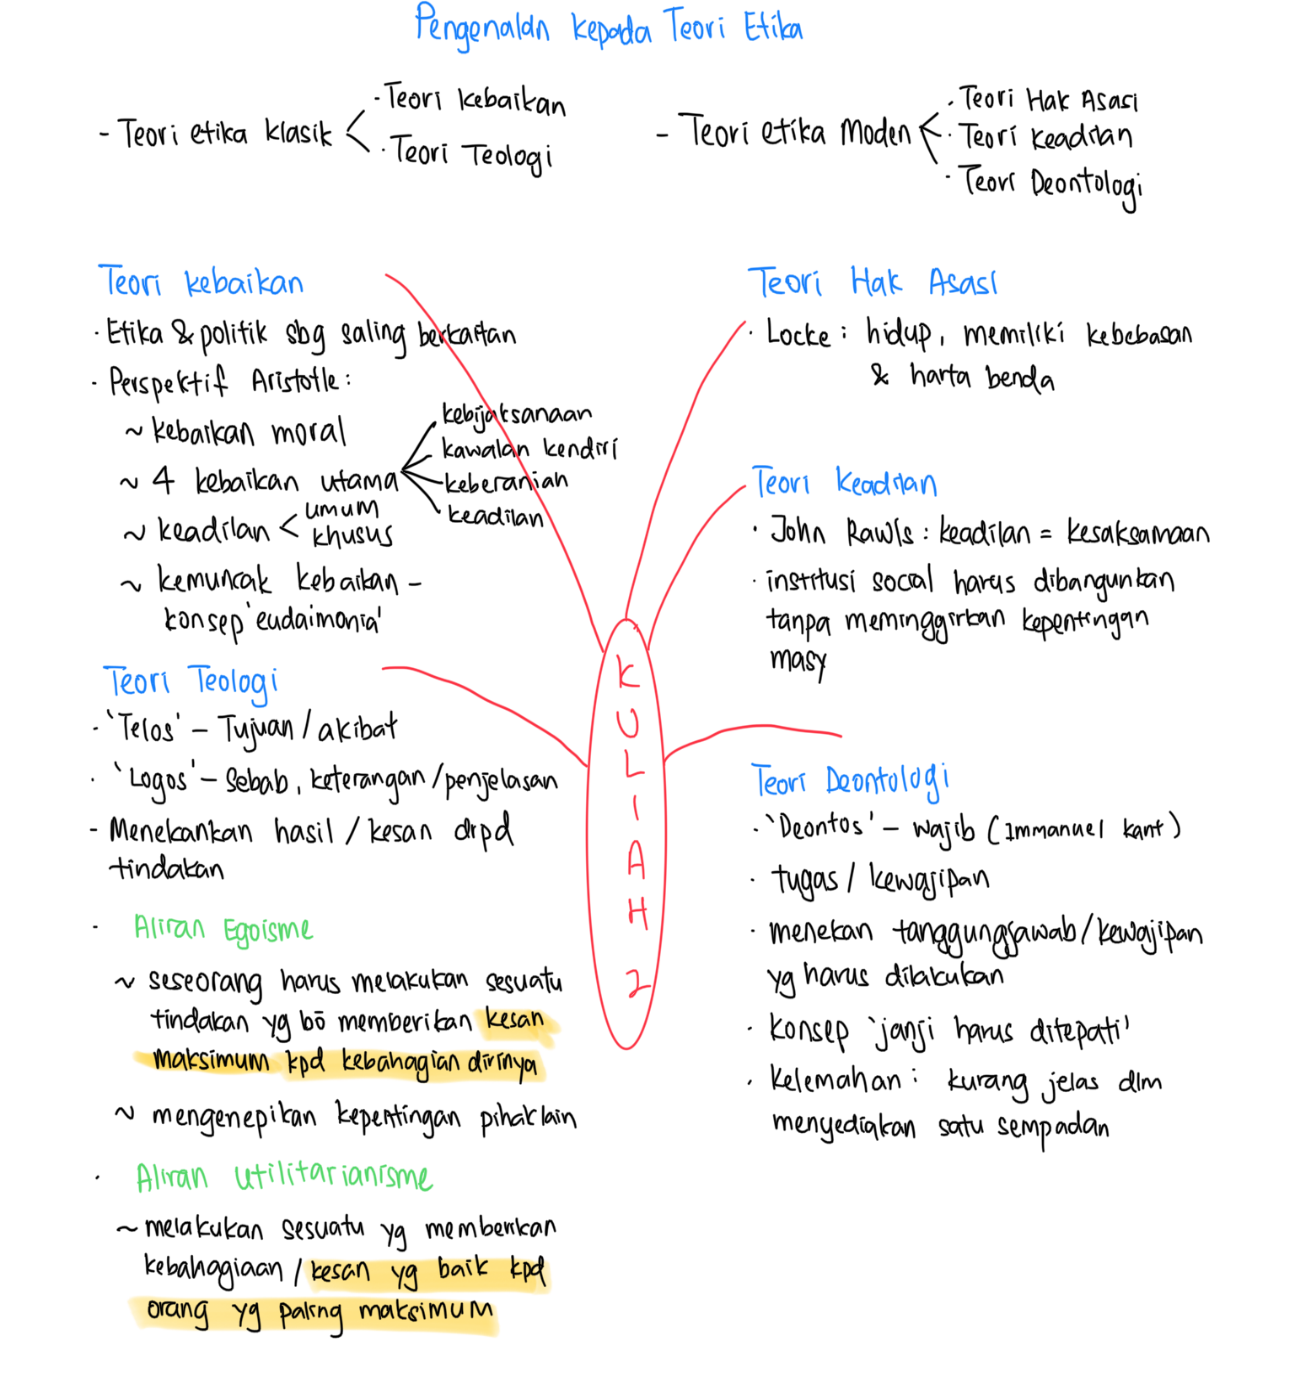 Pengenalan kepada Teori Etika
- Teori etika klasik
· Teori kebaikan
· Teori Teologi
- Teori etika Moden
· Teori Hak Asasi
· Teori Keadilan
· Teori Deontologi
Teori kebaikan
· Etika & politik sbg saling berkaitan
· Perspektif Aristotle :
~ kebaikan moral
~ 4 kebaikan utama
kebijaksanaan
kawalan kendiri
keberanian
keadilan
~ keadilan < umum
khusus
~ kemuncak kebaikan -
konsep 'eudaimonia'
Teori Teologi
· 'Telos' - Tujuan / akibat
· 'Logos' - sebab, keterangan / penjelasan
- Menekankan hasil / kesan drpd
tindakan
· Aliran Egoisme
~ seseorang harus melakukan sesuatu
tindakan yg bō memberikan kesan
maksimum kpd kebahagian dirinya
~ mengenepikan kepentingan pihak lain
· Aliran utilitarianisme
~ melakukan sesuatu yg memberikan
kebahagiaan / kesan yg baik kpd
orang yg paling maksimum
KULIAH 2
Teori Hak Asasi
· Locke : hidup, memiliki kebebasan
& harta benda
Teori Keadilan
· John Rawls : keadilan = kesaksamaan
· institusi social harus dibangunkan
tanpa meminggirkan kepentingan
masy
Teori Deontologi
· 'Deontos' - wajib (Immanuel kant)
· tugas / kewajipan
· menekan tanggungjawab / kewajipan
yg harus dilakukan
· konsep 'janji harus ditepati'
· kelemahan : kurang jelas dlm
menyediakan satu sempadan